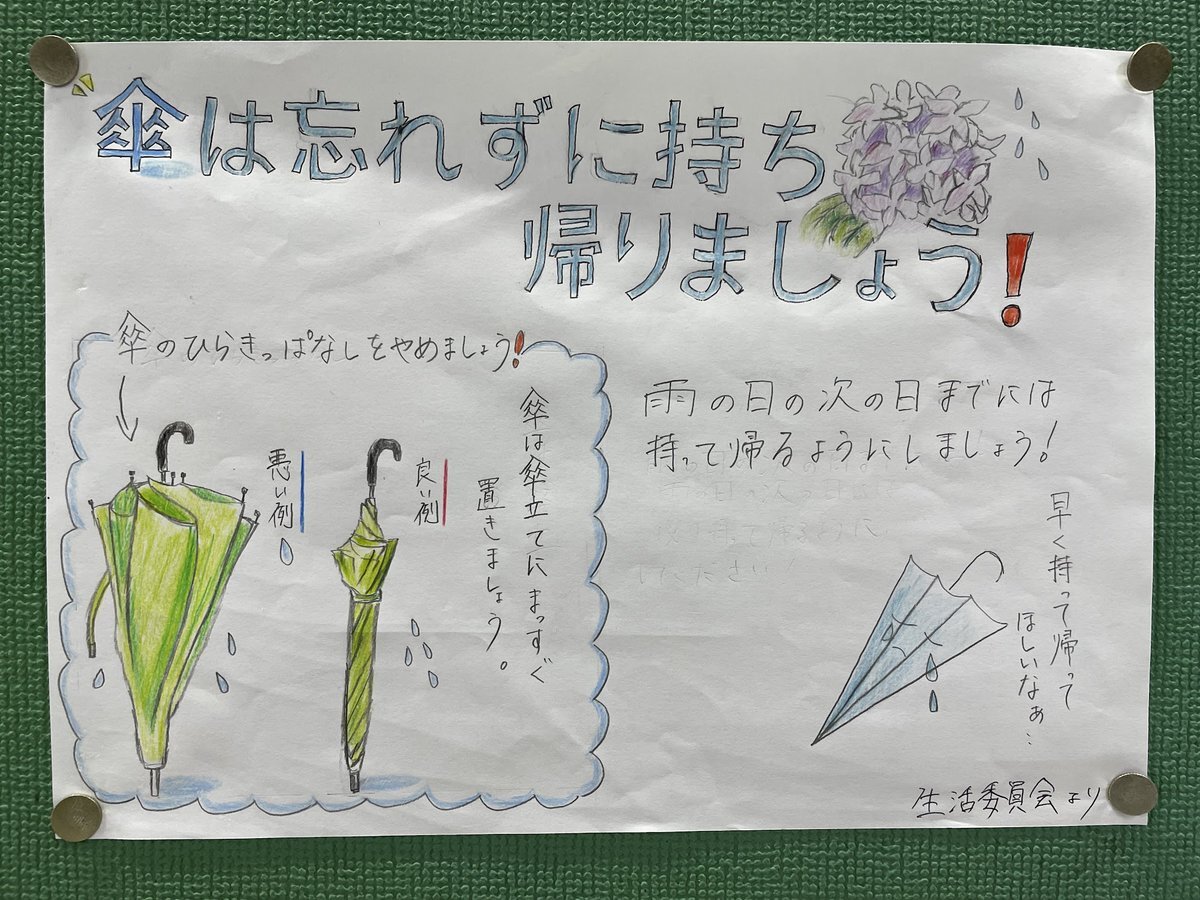 傘は忘れずに持ち
帰りましょう!
傘のひらきっぱなしをやめましょう!
傘は傘立てにまっすぐ
置きましょう。
良い例
悪い例
雨の日の次の日までには
持って帰るようにしましょう!
早く持って帰って
ほしいなぁ…
生活委員会より